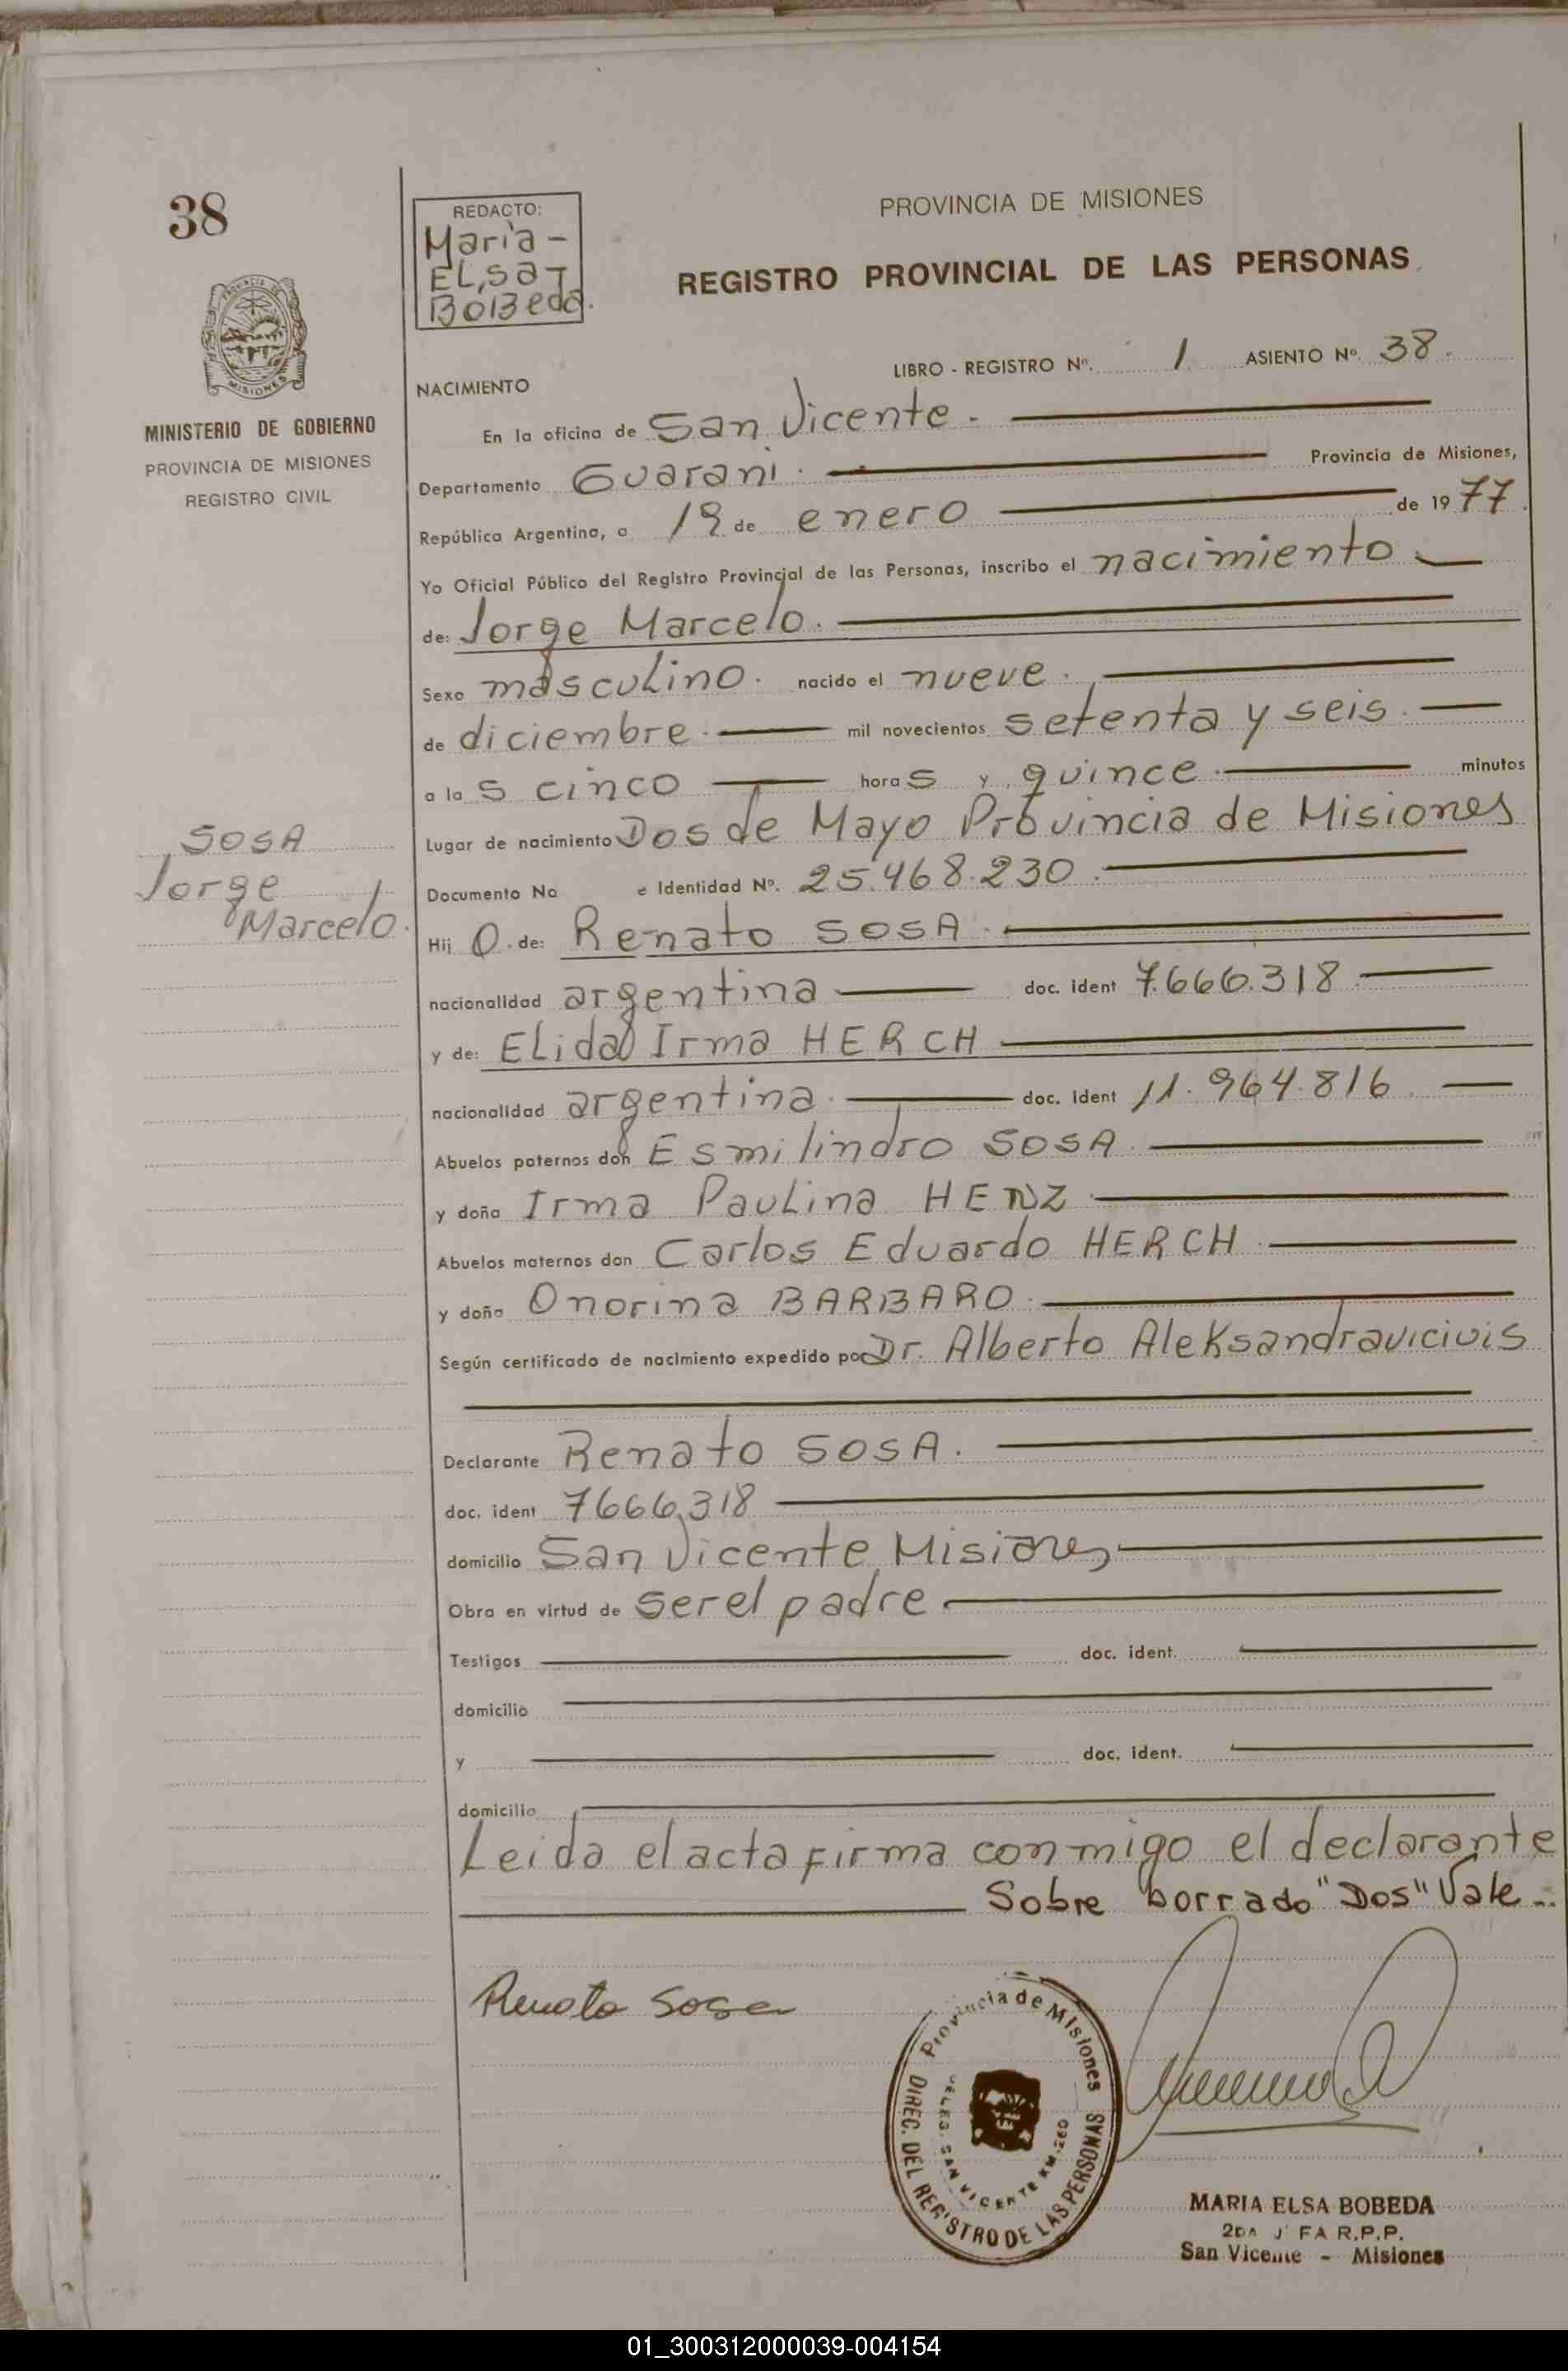 38
REDACTO:
Maria -
ELsa -
BoBeda.
PROVINCIA DE MISIONES
REGISTRO PROVINCIAL DE LAS PERSONAS
PROVINCIA DE
MISIONES
MINISTERIO DE GOBIERNO
PROVINCIA DE MISIONES
REGISTRO CIVIL
LIBRO - REGISTRO Nº. 1 ASIENTO Nº. 38.
NACIMIENTO
En la oficina de San Vicente.
Departamento Guarani. Provincia de Misiones,
República Argentina, a 19 de enero de 1977.
Yo Oficial Público del Registro Provincial de las Personas, inscribo el nacimiento
de: Jorge Marcelo.
Sexo masculino. nacido el nueve.
de diciembre. mil novecientos setenta y seis.
a las cinco horas y quince. minutos
Lugar de nacimiento Dos de Mayo Provincia de Misiones
SOSA
Jorge
Marcelo.
Documento Na e Identidad Nº. 25.468.230.
Hijo. de: Renato SOSA.
nacionalidad argentina doc. ident 7.666.318.
y de: ELida Irma HERCH
nacionalidad argentina. doc. ident 11.964.816.
Abuelos paternos don Esmilindro SOSA.
y doña Irma PauLina HENZ
Abuelos maternos don Carlos Eduardo HERCH.
y doña Onorina BARBARO.
Según certificado de nacimiento expedido por Dr. Alberto Aleksandravicivis
Declarante Renato SOSA.
doc. ident 7666.318
domicilio San Vicente Misiones
Obra en virtud de ser el padre
Testigos doc. ident.
domicilio
y doc. ident.
domicilio
Leida el acta firma conmigo el declarante
Sobre borrado "Dos" Vale..
Renato Sosa
Provincia de Misiones
DIREC. DEL REGISTRO DE LAS PERSONAS
SAN VICENTE KM.260
MARIA ELSA BOBEDA
R.P.P.
San Vicente - Misiones
01_300312000039-004154